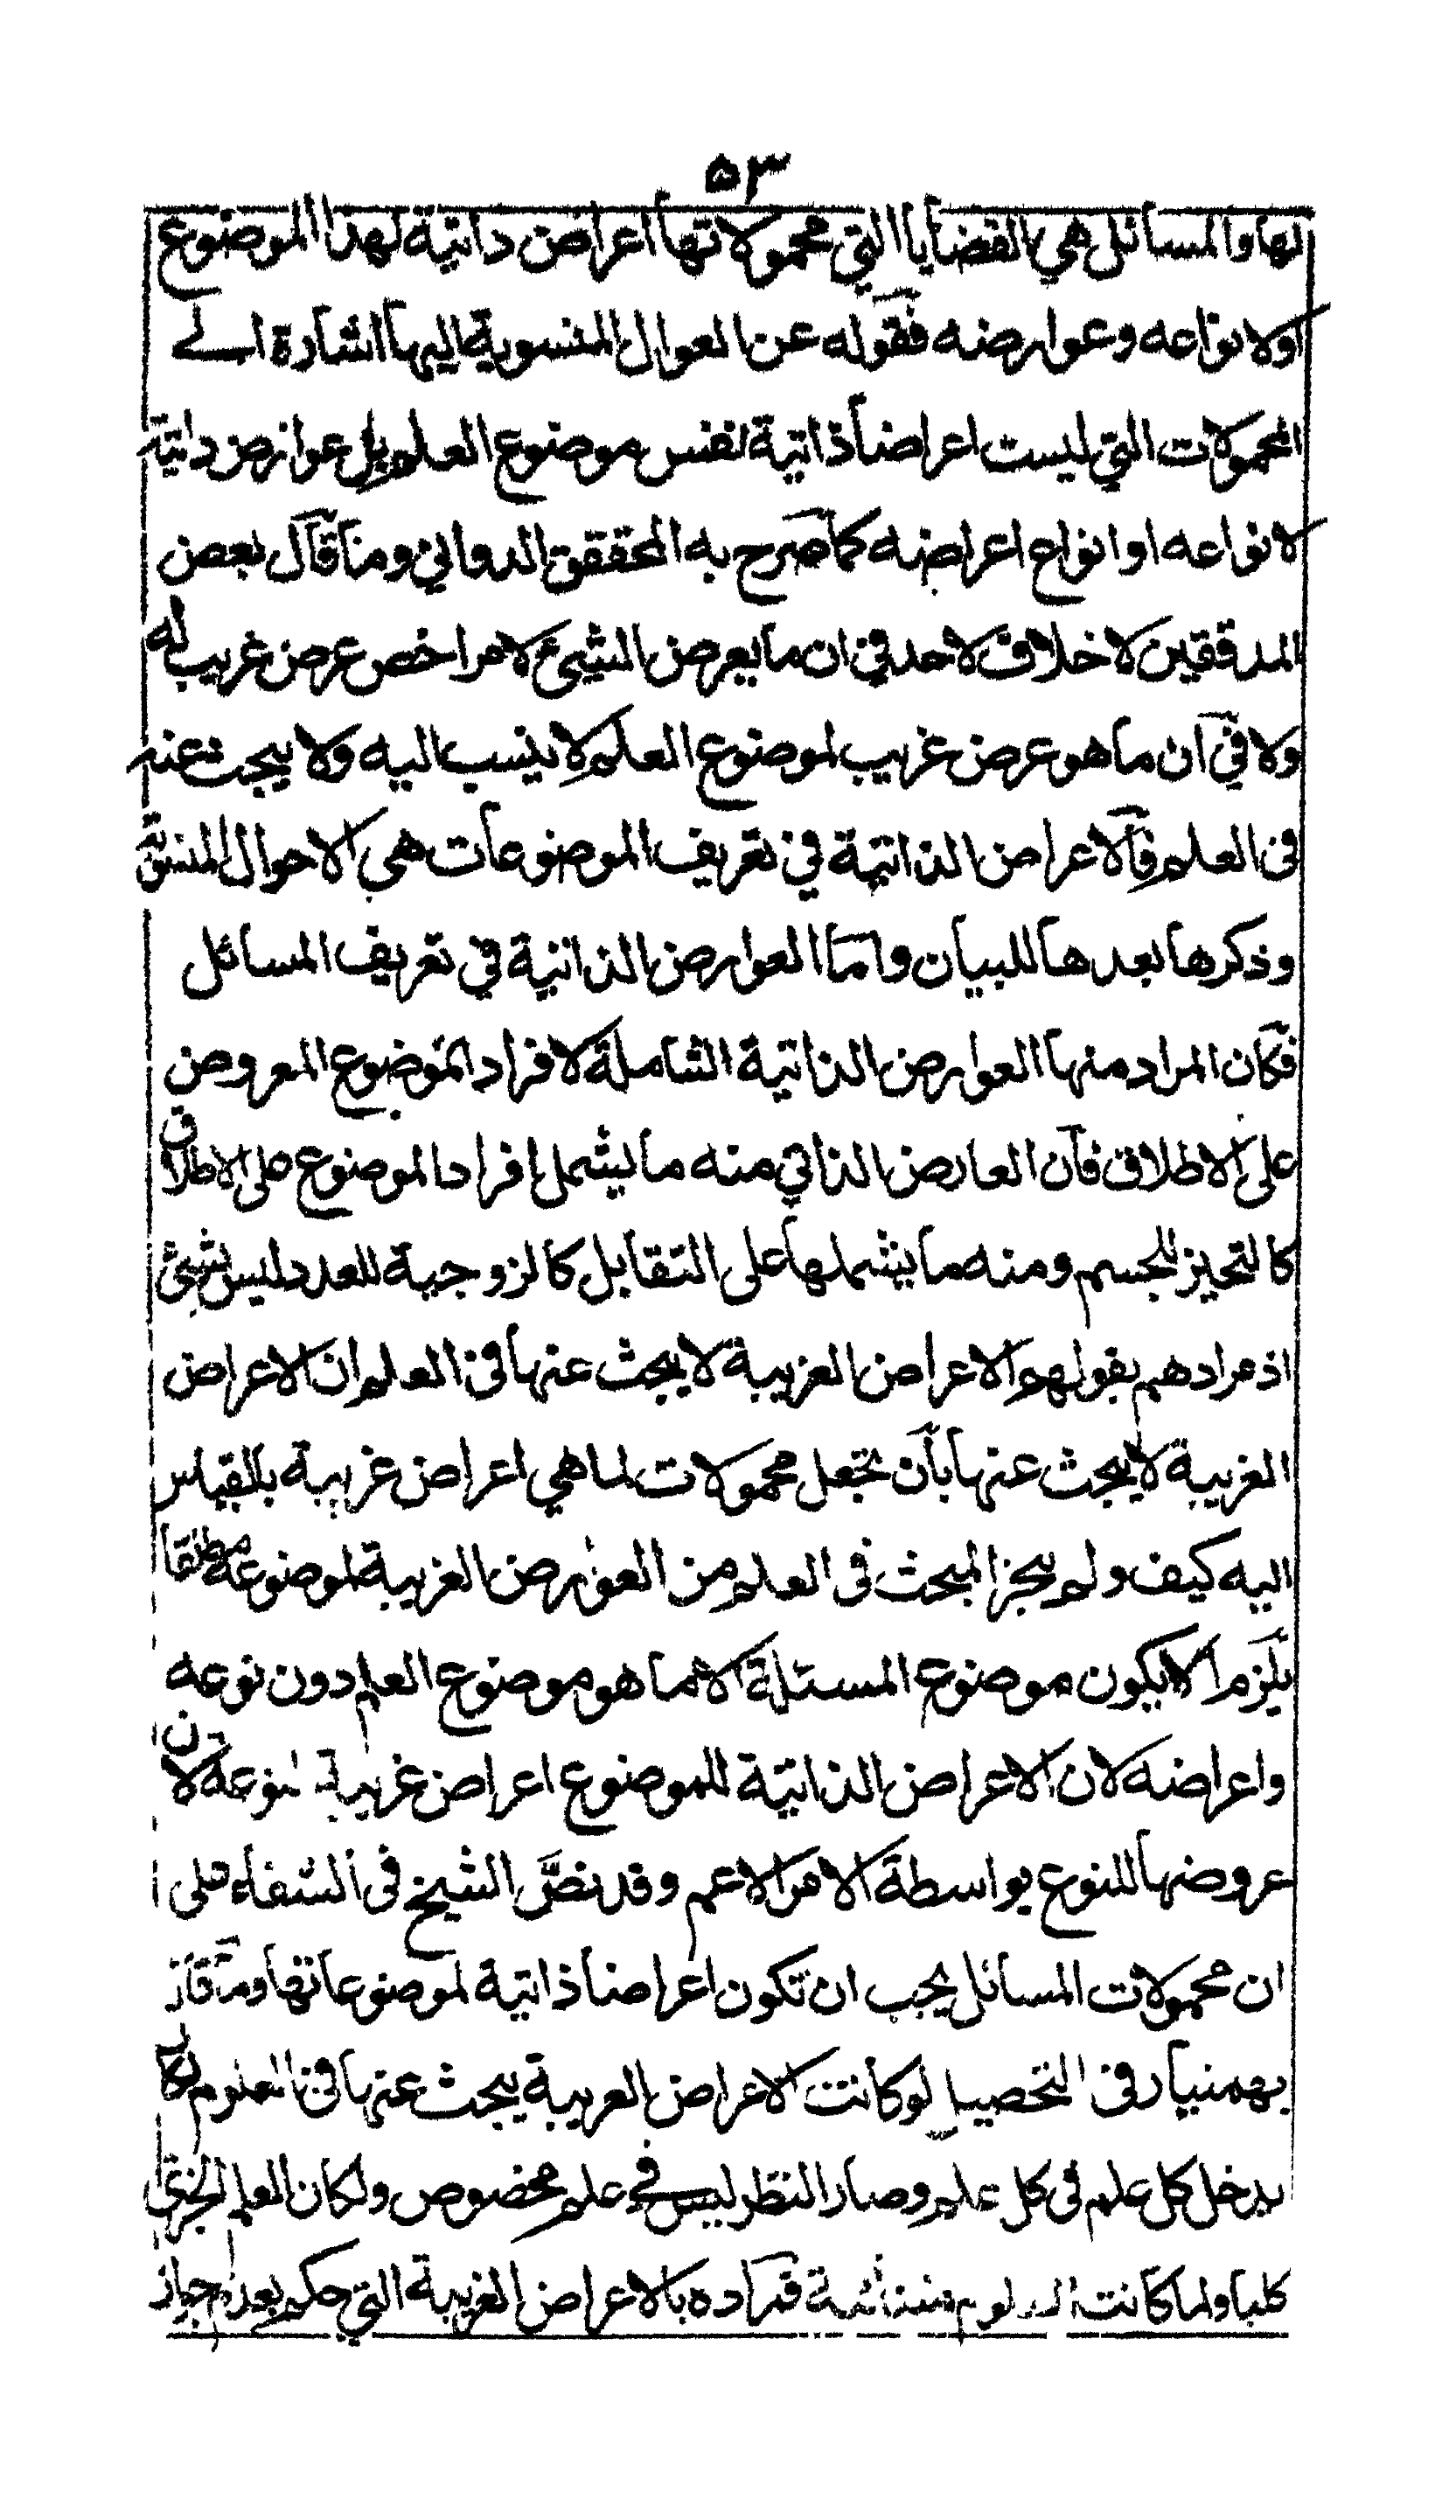 ٥٣
لها والمسائل هي القضايا التي محمولاتها اعراض ذاتية لهذا الموضوع
او لانواعه وعوارضه فقوله عن العوال المنسوبة اليها اشارة الے
المحمولات التي ليست اعراضا ذاتية لنفس موضوع العلم بل عوارض ذاتية
لانواعه او انواع اعراضه كما صرح به المحقق الدواني وما قال بعض
المدققين لا خلاف لاحد في ان ما يعرض الشيئ لامر اخص عرض غريب له
ولا في ان ما هو عرض غريب لموضوع العلم لا ينسب اليه ولا يبحث عنه
في العلم فالاعراض الذاتية في تعريف الموضوعات هي الاحوال المنسوبة
وذكرها بعدها للبيان واما العوارض الذاتية في تعريف المسائل
فكان المراد منها العوارض الذاتية الشاملة لافراد الموضوع المعروض
على الاطلاق فان العارض الذاتي منه ما يشمل افراد الموضوع على الاطلاق
كالتحيز للجسم ومنه ما يشملها على التقابل كالزوجية للعدد ليس بشيئ
اذ مرادهم بقولهم الاعراض الغريبة لا يبحث عنها في العلم ان الاعراض
الغريبة لا يبحث عنها بان تجعل محمولات لما هي اعراض غريبة بالقياس
اليه كيف ولو لم يجز البحث في العلم من العوارض الغريبة لموضوعه مطلقا
يلزم الا يكون موضوع المسئلة الا ما هو موضوع العلم دون نوعه
واعراضه لان الاعراض الذاتية للموضوع اعراض غريبة لنوعه لان
عروضها للنوع بواسطة الامر الاعم وقد نصَّ الشيخ في الشفاء على
ان محمولات المسائل يجب ان تكون اعراضا ذاتية لموضوعاتها وما قال
بهمنيار في التحصيل لو كانت الاعراض الغريبة يبحث عنها في العلوم لكان
يدخل كل علم في كل علم وصار النظر ليس في علم مخصوص ولكان العلم الجزئي
كليا ولما كانت العلوم متبائنة فمراده بالاعراض الغريبة التي حكم بعدم جواز